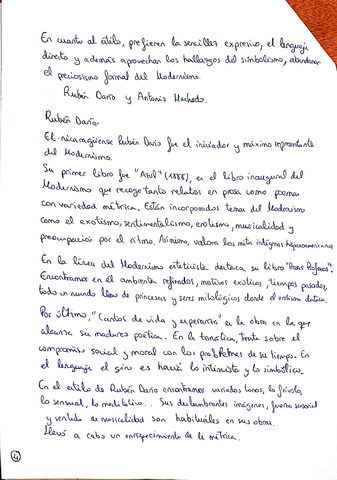 En cuanto al estilo, prefieren la sencillez expresiva, el lenguaje
directo y además aprovechan los hallazgos del simbolismo, abandonan
el preciosismo formal del Modernismo.
Rubén Darío y Antonio Machado.
Rubén Darío.
El nicaragüense Rubén Darío fue el iniciador y máximo representante
del Modernismo.
Su primer libro fue "Azul" (1888), es el libro inaugural del
Modernismo que recoge tanto relatos en prosa como poemas
con variedad métrica. Están incorporados temas del Modernismo
como el exotismo, sentimentalismo, erotismo, musicalidad y
preocupación por el ritmo. Asimismo, valora los mitos indígenas hispanoamericanos
En la línea del Modernismo esteticista destaca su libro "Prosas Profanas".
Encontramos en él ambientes refinados, motivos exóticos, tiempos pasados,
todo un mundo lleno de princesas y seres mitológicos donde el erotismo destaca.
Por último, "Cantos de vida y esperanza" es la obra en la que
alcanza su madurez poética. En la temática, trata sobre el
compromiso social y moral con los problemas de su tiempo. En
el lenguaje el giro es hacia lo intimista y lo simbólico.
En el estilo de Rubén Darío encontramos variados tonos, lo frívolo,
lo sensual, lo meditativo... Sus deslumbrantes imágenes, fuerza sensorial
y sentido de musicalidad son habituales en sus obras.
Llevó a cabo un enriquecimiento de la métrica.
4